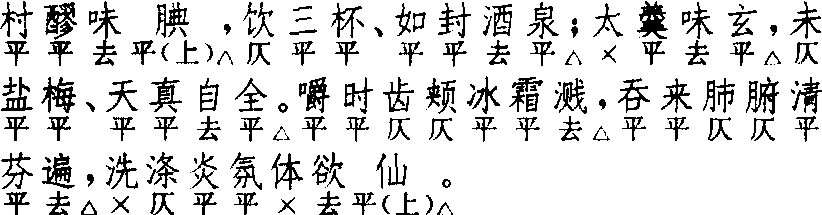 村醪味腆，饮三杯、如封酒泉；太羹味玄，未
平平去平(上)△仄平平 平平去平△×平去平△仄
盐梅、天真自全。嚼时齿颊冰霜溅，吞来肺腑清
平平 平平去平△平平仄仄平平去△平平仄仄平
芬遍，洗涤炎氛体欲仙。
平去△×仄平平×去平(上)△